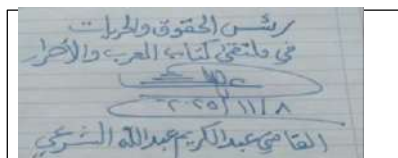 رئيس الحقوق والحريات
في ملتقى كتاب العرب والأحرار
٢٠٢٥/١١/٨
القاضي عبدالكريم عبدالله الشرعي